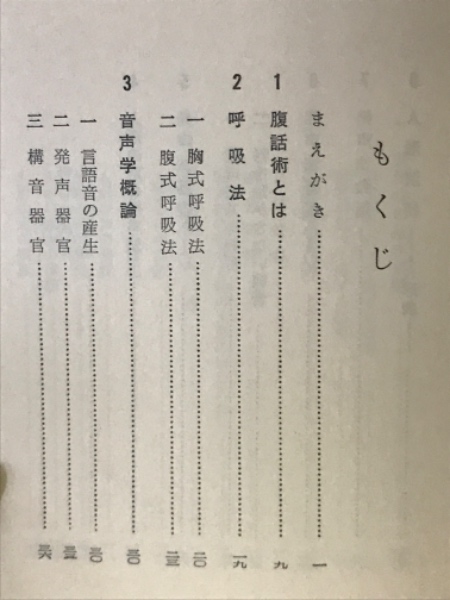 もくじ
まえがき……………一
1 腹話術とは……………九
2 呼吸法……………一九
一 胸式呼吸法……………二〇
二 腹式呼吸法……………二三
3 音声学概論……………三〇
一 言語音の産生……………三〇
二 発声器官……………三三
三 構音器官……………三六